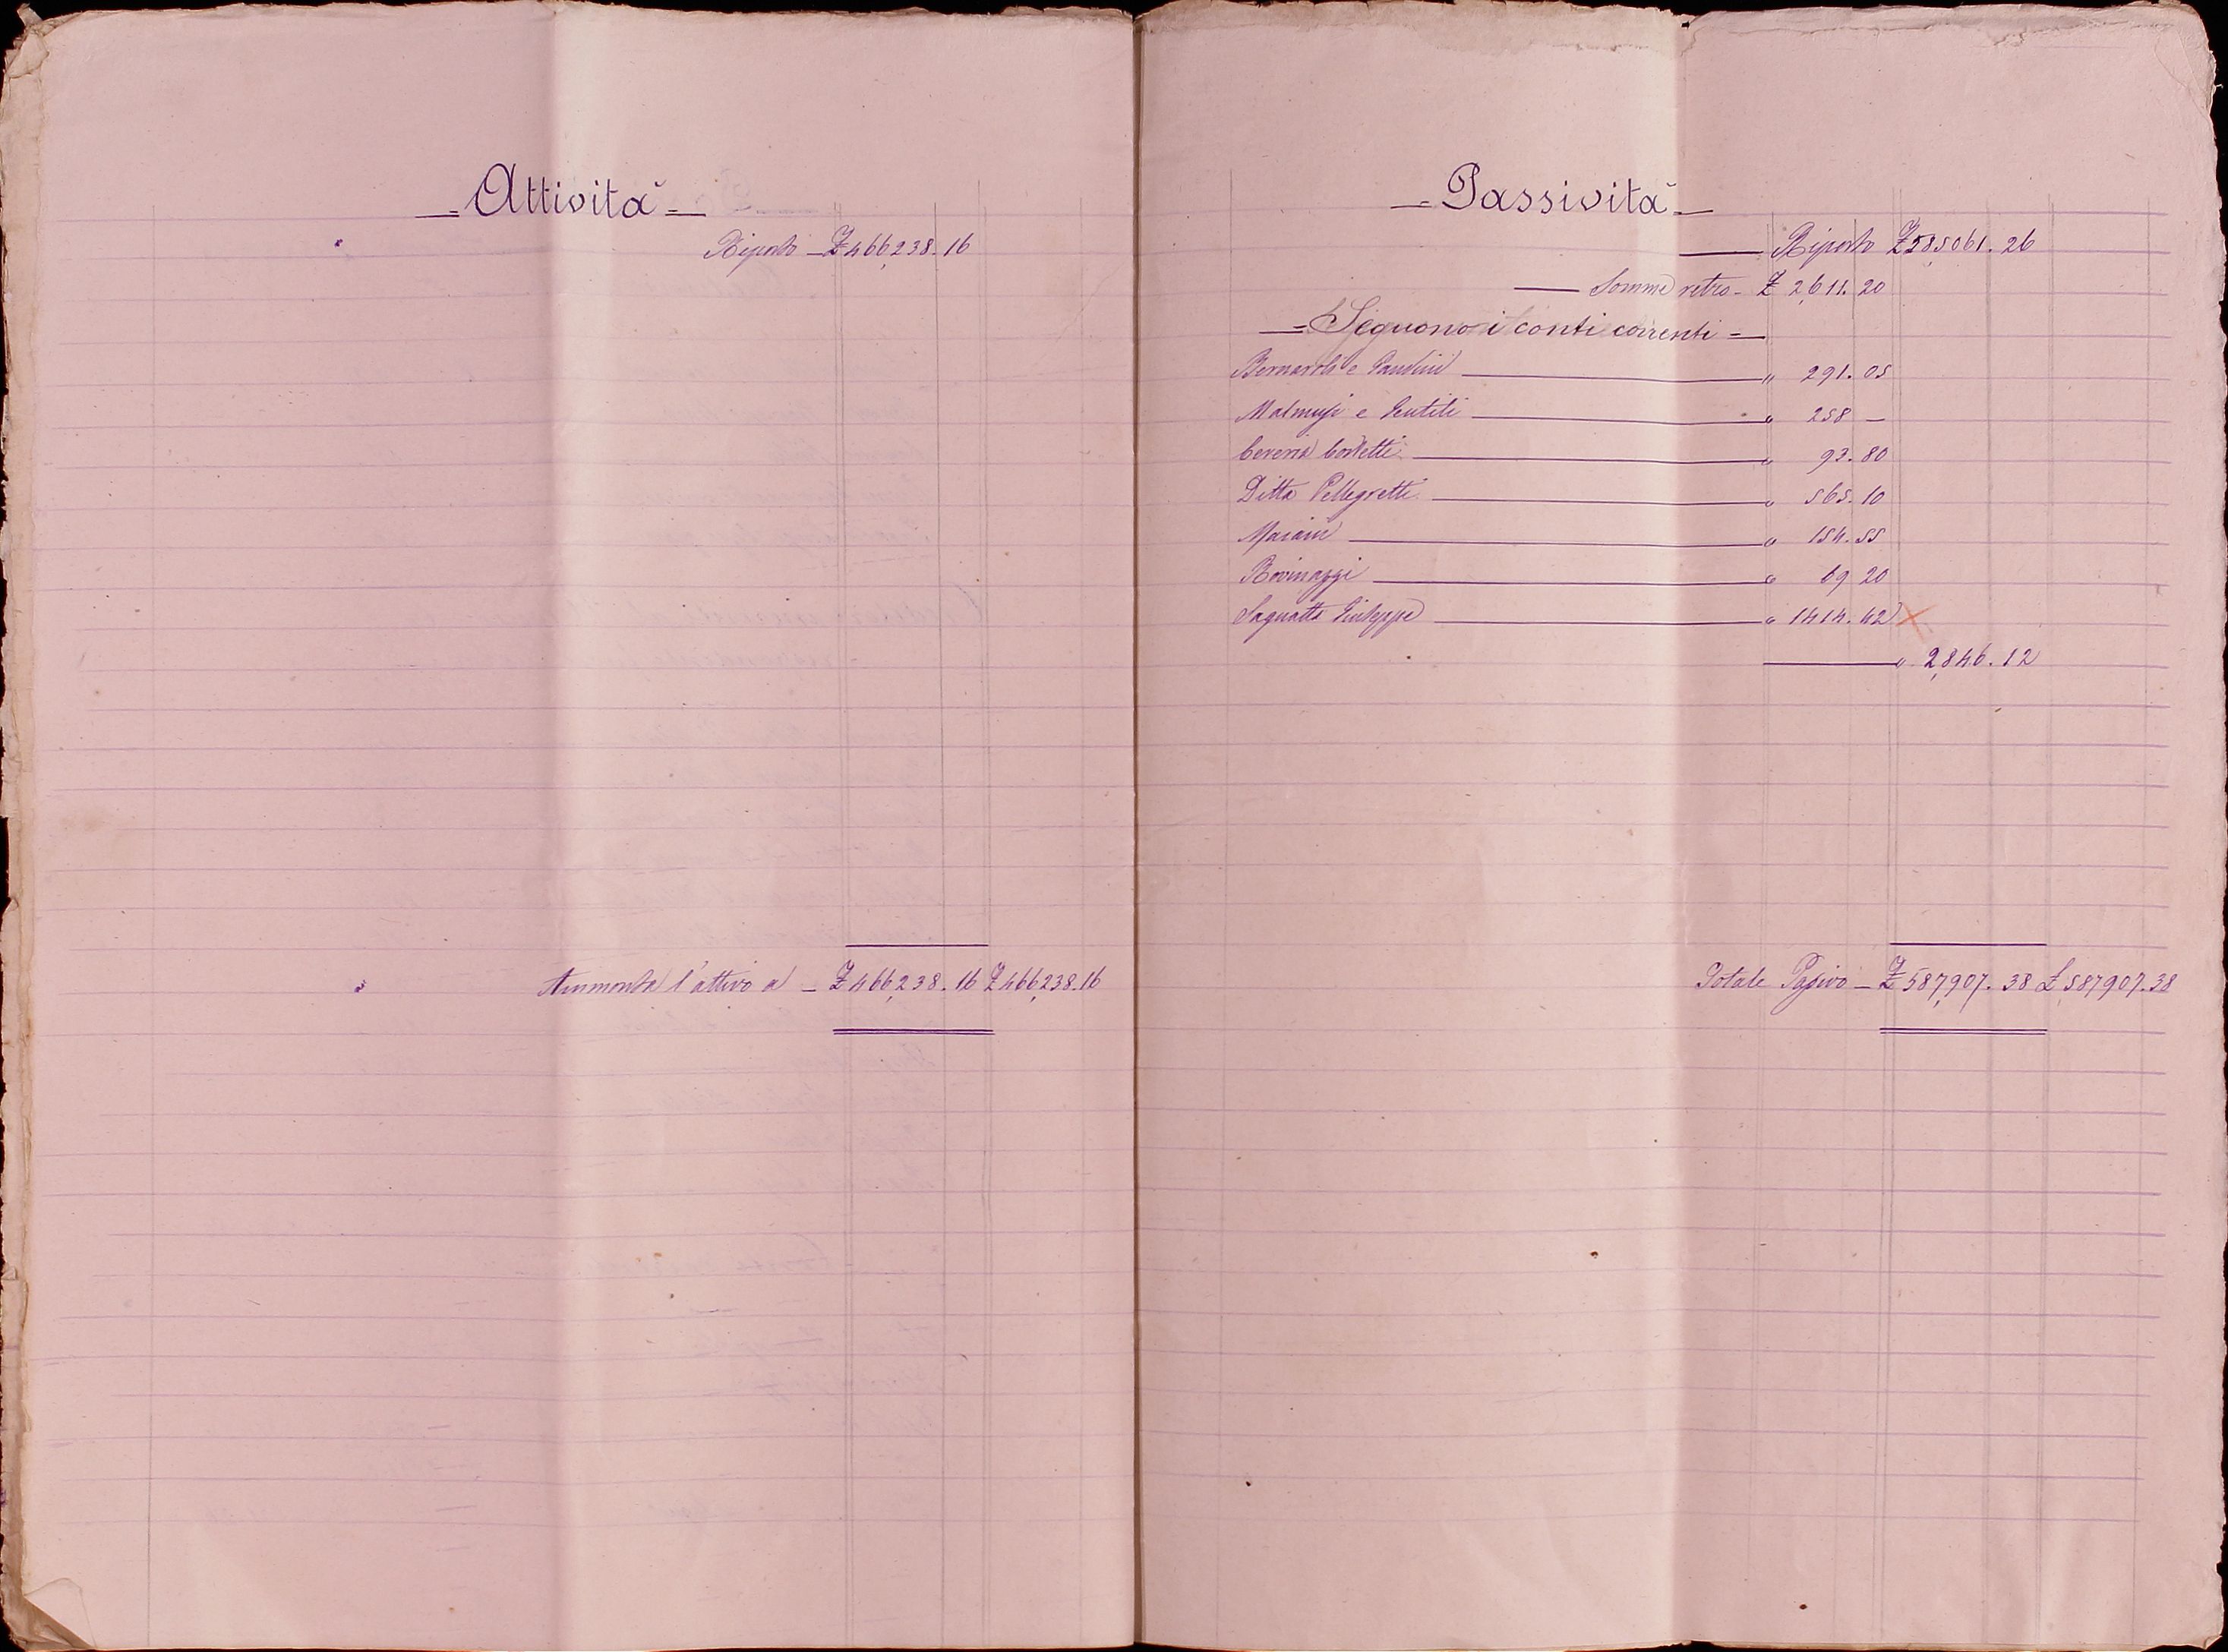 = Attività =
Riporto — £ 466,238.16
Ammonta l'attivo a — £ 466,238.16 £ 466,238.16
= Passività =
Riporto £ 585,061.26
Somme retro - £ 2,611.20
= Seguono i conti correnti =
Bernaroli e Gandini " 291.05
Malmusi e Gentili " 258 —
Cereria " 93.80
Ditta Pellegretti " 565.10
Maiani " 154.55
Rovinazzi " 69 20
Saguatti Giuseppe " 1414.42 X
" 2,846.12
Totale Passivo — £ 587,907.38 £ 587907.38